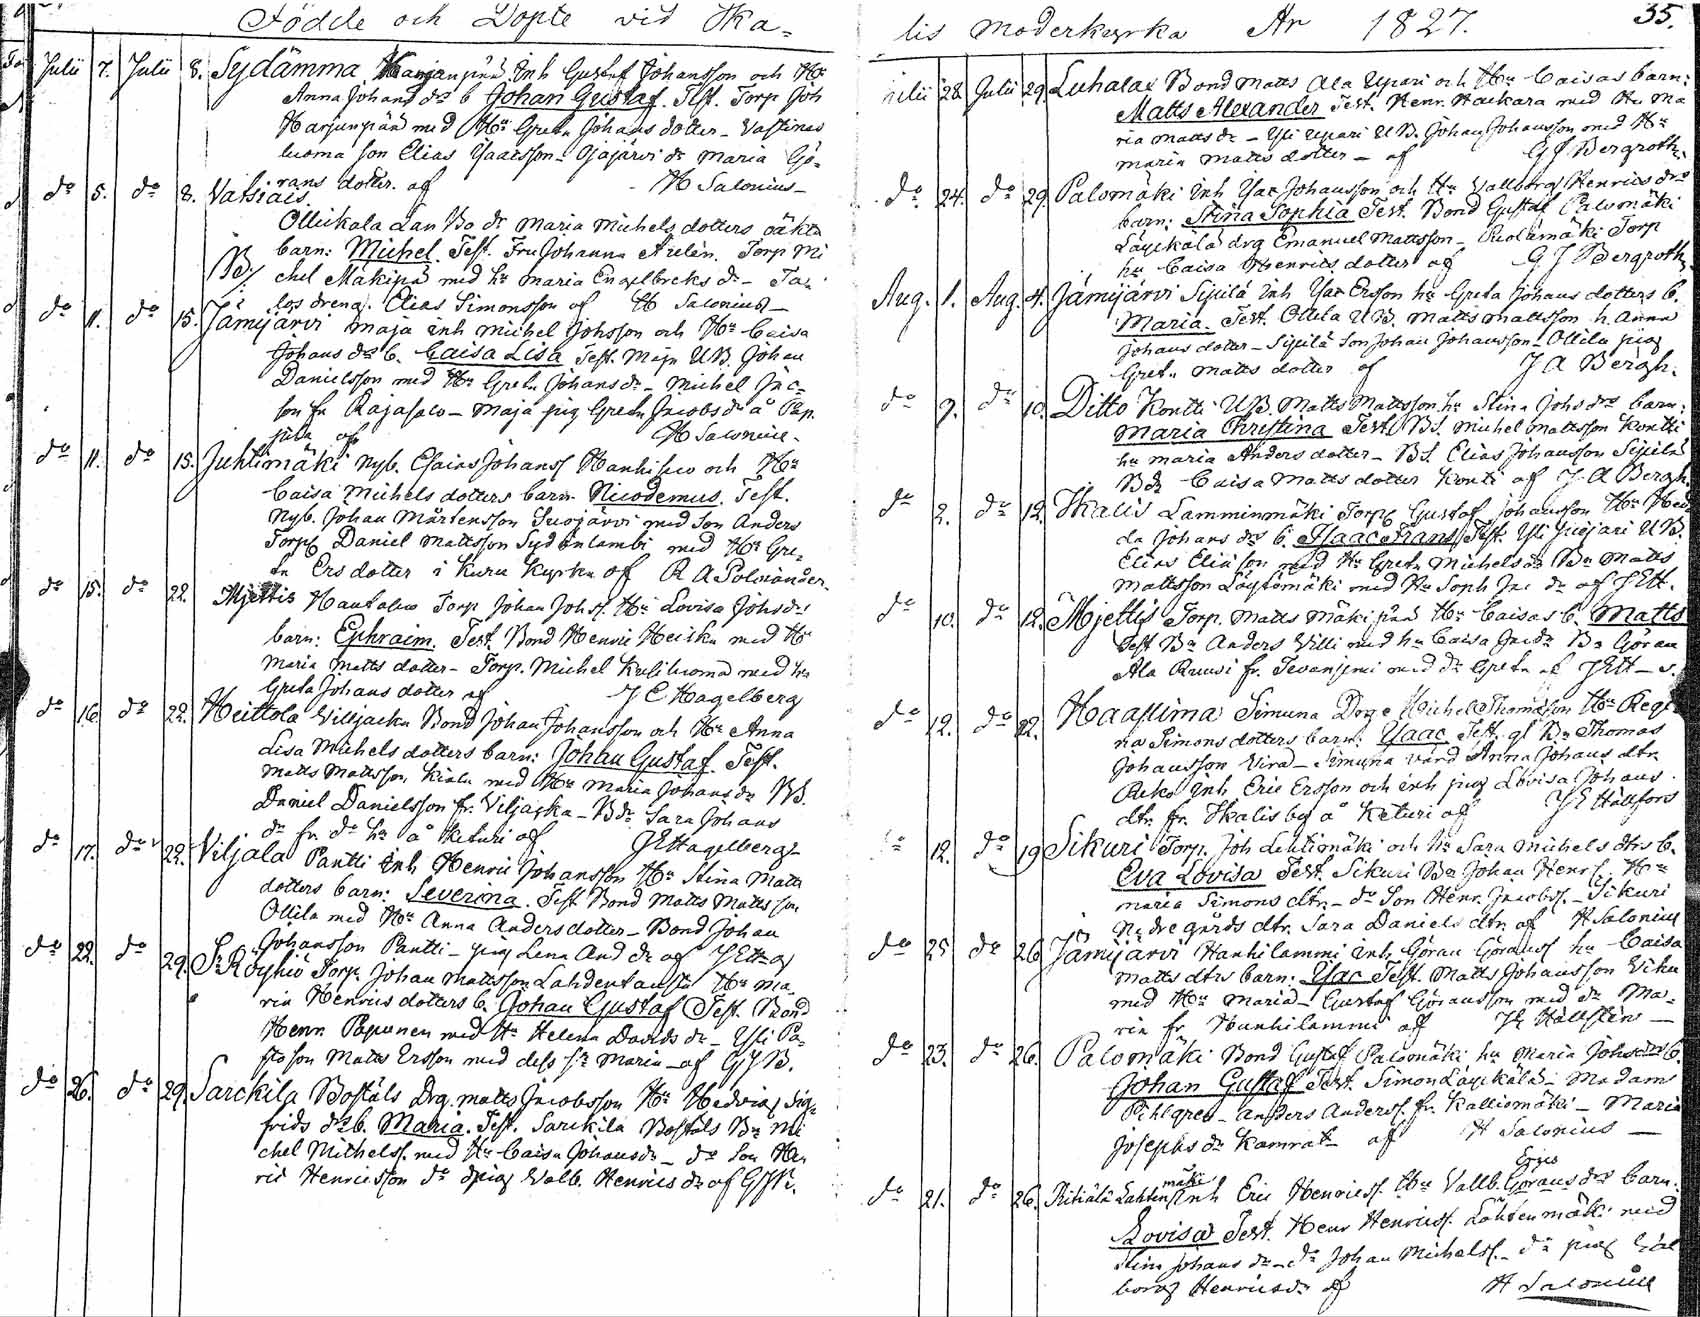 Födde och Döpte vid Ika=
Julii 7. Julii 8. Sydämma Harjunpää Inh Gustaf Johansson och Hu
Anna Johans dr b Johan Gustaf. Test. Torp Joh
Harjunpää med Hu Greta Johans dotter _ Vastines
luoma son Elias Isacsson _ Ojajärvi dr Maria Gö=
rans dotter. af H Salonius _
do 5. do 8. Vatsiais
Ollickala Lan Bo dr Maria Michels dotters oäkta
barn: Michel. Test. Fru Johanna Arelén. Torp Mi
chel Mäkipä med hu Maria Engelbrects dr _ Ta
los dreng. Elias Simonsson af H Salonius _
do 11. do 15. Jämijärvi Maja inh Michel Johsson och Hu Caisa
Johans dr b. Caisa Lisa Test. Maja UB Johan
Danielsson med Hu Greta Johans dr _ Michel Jac=
son fr Rajasalo _ Maja pig Greta Jacobs dr å Pap.
pila af H Salonius.
do 11. do 15. Juhtimäki Nyb. Esaias Johanss Hanhisuo och Hu
Caisa Michels dotters barn Nicodemus. Test.
Nyb. Johan Mårtensson Suojärvi med Son Anders
Torp Daniel Mattsson Sydänlambi med Hu Gre=
ta Ers dotter i Kuru Kyrka af R A Polviander
do 15. do 22. Mjettis Hautaluo Torp Johan Johs. Hu Lovisa Johs dr
barn: Ephraim. Test. Bond Henric Heiska med Hu
Maria Matts dotter _ Torp. Michel Kuliluoma med hu
Greta Johans dotter af J E Hagelberg
do 16. do 22. Heittola Villjacka Bond Johan Johansson och Hu Anna
Lisa Michels dotters barn: Johan Gustaf. Test.
Matts Mattsson Kiala med Hu Maria Johans dr BS.
Daniel Danielsson fr. Viljacka _ Bdr Sara Johans
dr fr do hr å Keturi af J E Hagelberg
do 17. do 22. Viljala Pantti inh Henric Johansson Hu Stina Matts
dotters barn: Severina. Test Bond Matts Mattsson
Ollila med Hu Anna Anders dotter _ Bond Johan
Johansson Pantti _ pig Lena And dr af J E H a g
do 22. do 29. S. Röyhiö Torp. Johan Mattsson Lahdentausta Hu Ma
ria Henrics dotters b. Johan Gustaf Test. Bond
Henr. Papunen med Hu Helena Davids dr _ Yli Pa=
sto son Matts Ersson med dess sr Maria _ af G J B.
do 26. do 29. Sarckila Boställs Drg. Matts Jacobsson Hu Hedvig Sig
frids dr b. Maria. Test. Sarckila Boställs Bn Mi
chel Michelss. med Hu Caisa Johans dr _ do Son Hen
ric Henricsson do dpig Valb. Henrics dr af G J B.
lis Moderkyrka År 1827. 35.
Julii 28. Julii 29. Luhalax Bond Matts Ala Upari och Hu Caisas barn:
Matts Alexander Test. Henr. Haukara med Hu Ma
ria Matts dr _ Yli Upari UB. Johan Johansson med Hu
Maria Matts dotter _ af G J Bergroth.
do 24. do 29. Palomäki inh Isac Johansson och Hu Vallborg Henrics drs
barn: Stina Sophia Test. Bond Gustaf Palomäki
Läyckälä drg Emanuel Mattsson _ Puolamäki Torp
hu Caisa Henrics dotter af G J Bergroth.
Aug. 1. Aug. 4. Jämijärvi Sipilä Inh Isac Ersson hu Greta Johans dotters b.
Maria. Test. Ollila UB. Matts Mattsson h. Anna
Johans dotter _ Sipilä Son Johan Johansson _ Ollila pig
Greta Matts dotter af J A Bergh.
do 9. do 10. Ditto Kontti UB. Matts Mattsson hu Stina Johs drs barn:
Maria Christina Test. BS. Michel Mattsson Kontti
hu Maria Anders dotter _ BS. Elias Johansson Sipilä
Bdr Caisa Matts dotter Konti af J A Bergh
do 2. do 12. Ikalis Lamminmäki Torp Gustaf Johansson Hu Hed
da Johans drs b. Isaac Frans Test. Yli Juojari UB.
Elias Eliasson med Hu Greta Michels dr Bn Matts
Mattsson Löytömäki med Hu Soph Jac dr af J E H.
do 10. do 12. Mjettis Torp. Matts Mäkipää Hu Caisas b. Matts
Test Bn Anders Villi med hu Caisa Jac dr Bn Göran
Ala Ruusi fr Tevanjemi med dr Greta af J E H _ s.
do 12. do 12. Haapima Simuna Drge Michel Thomasson Hu Regi
na Simons dotters barn: Isaac Test. gl Bn Thomas
Johansson Vira _ Simuna värd Anna Johans dtr.
Pako inh Eric Ersson och inh pig Lovisa Johans
dtr. fr. Ikalis by å Keturi af J E Hällfors
12. do 19 Sikuri Torp. Joh Lehtimäki och Hu Sara Michels dtrs b.
Eva Lovisa Test. Sikuri Bn Johan Henrs. Hu
Maria Simons dtr. _ do Son Henr. Jacobss. _ Sikuri
Nedregårds dtr. Sara Daniels dtr. af H Salonius
do 25 do 26 Jämijärvi Hanhilammi inh. Göran Göranss hu Caisa
Matts dtrs barn: Isac Test. Matts Johansson Viku
med Hu Maria _ Gustaf Göransson med dr Ma=
ria fr. Hanhilammi af J E Hällfors _
do 23. do 26. Palomäki Bond Gustaf Palomäki hu Maria Johs drs b.
Johan Gustaf Test. Simon Läyckälä _ Madam
Pihlgren _ Anders Anderss. fr. Kalliomäki _ Maria
Josephs dr Kamrat af H Salonius _
do 21. do 26. Ritiälä Lahtenmäki Inh Eric Henricss. Hu Vallb. Görans drs barn.
Erics
Lovisa Test. Henr Henricss. Lahtenmäki med
Stina Johans dr _ do Johan Michelss. _ do pig Val
borg Henrics dr af H Salonius